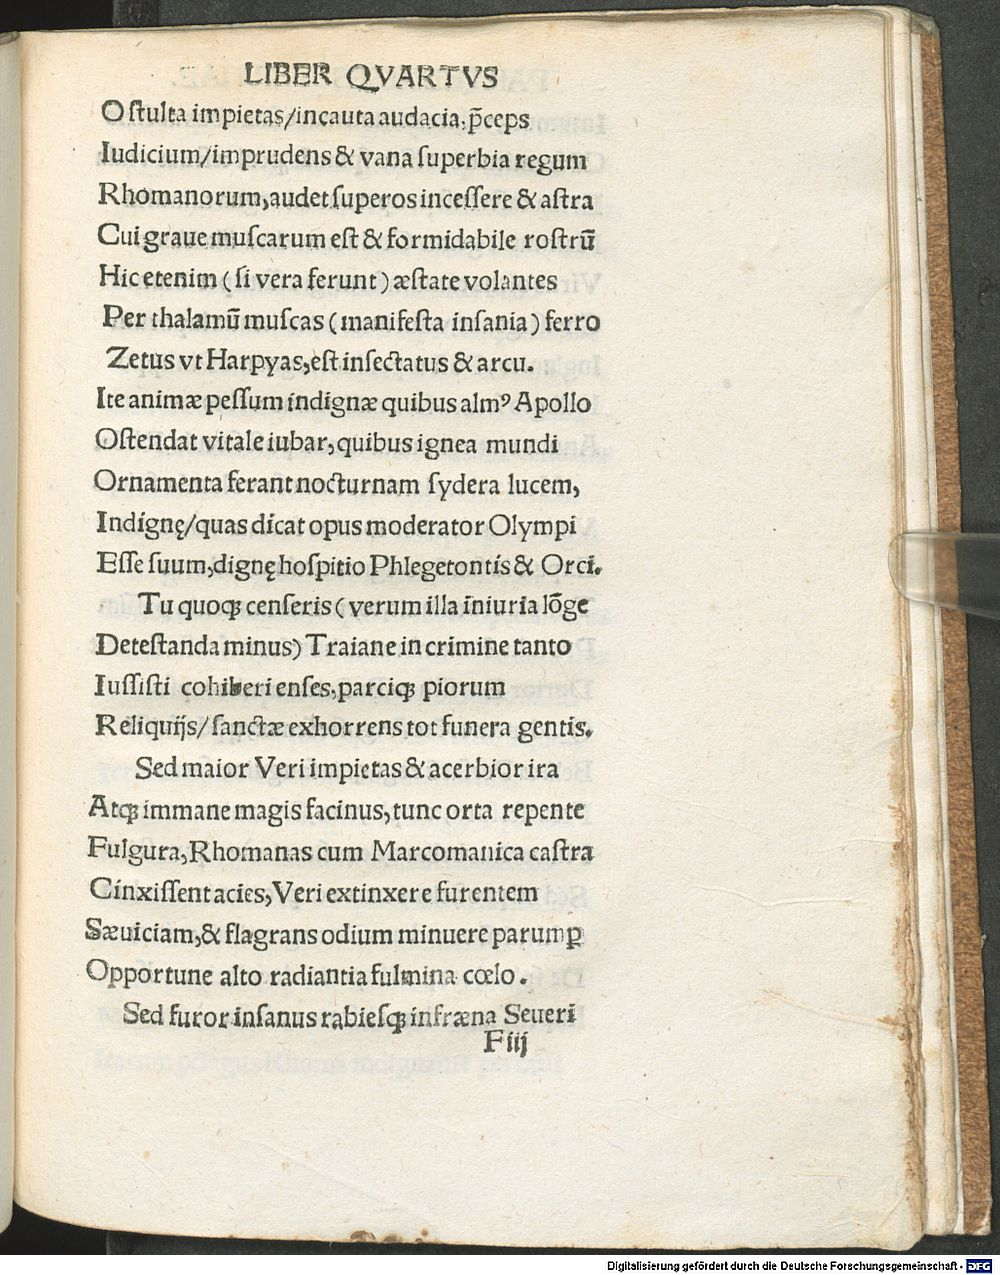 LIBER QVARTVS
O ſtulta impietas/incauta audacia, p̄ceps
Iudicium/imprudens & vana ſuperbia regum
Rhomanorum, audet ſuperos inceſſere & aſtra
Cui graue muſcarum eſt & formidabile roſtrū
Hic etenim (ſi vera ferunt) æſtate volantes
Per thalamū muſcas (manifeſta inſania) ferro
Zetus vt Harpyas, eſt inſectatus & arcu.
Ite animæ peſſum indignæ quibus almꝰ Apollo
Oſtendat vitale iubar, quibus ignea mundi
Ornamenta ferant nocturnam ſydera lucem,
Indignę/quas dicat opus moderator Olympi
Eſſe ſuum, dignę hoſpitio Phlegetontis & Orci.
Tu quoqꝫ cenſeris (verum illa iniuria lōge
Deteſtanda minus) Traiane in crimine tanto
Iuſſiſti cohiberi enſes, parciqꝫ piorum
Reliquijs/ſanctæ exhorrens tot funera gentis.
Sed maior Veri impietas & acerbior ira
Atqꝫ immane magis facinus, tunc orta repente
Fulgura, Rhomanas cum Marcomanica caſtra
Cinxiſſent acies, Veri extinxere furentem
Sæuiciam, & flagrans odium minuere parumꝑ
Opportune alto radiantia fulmina cœlo.
Sed furor inſanus rabieſqꝫ infræna Seueri
F iij
Digitalisierung gefördert durch die Deutsche Forschungsgemeinschaft - DFG